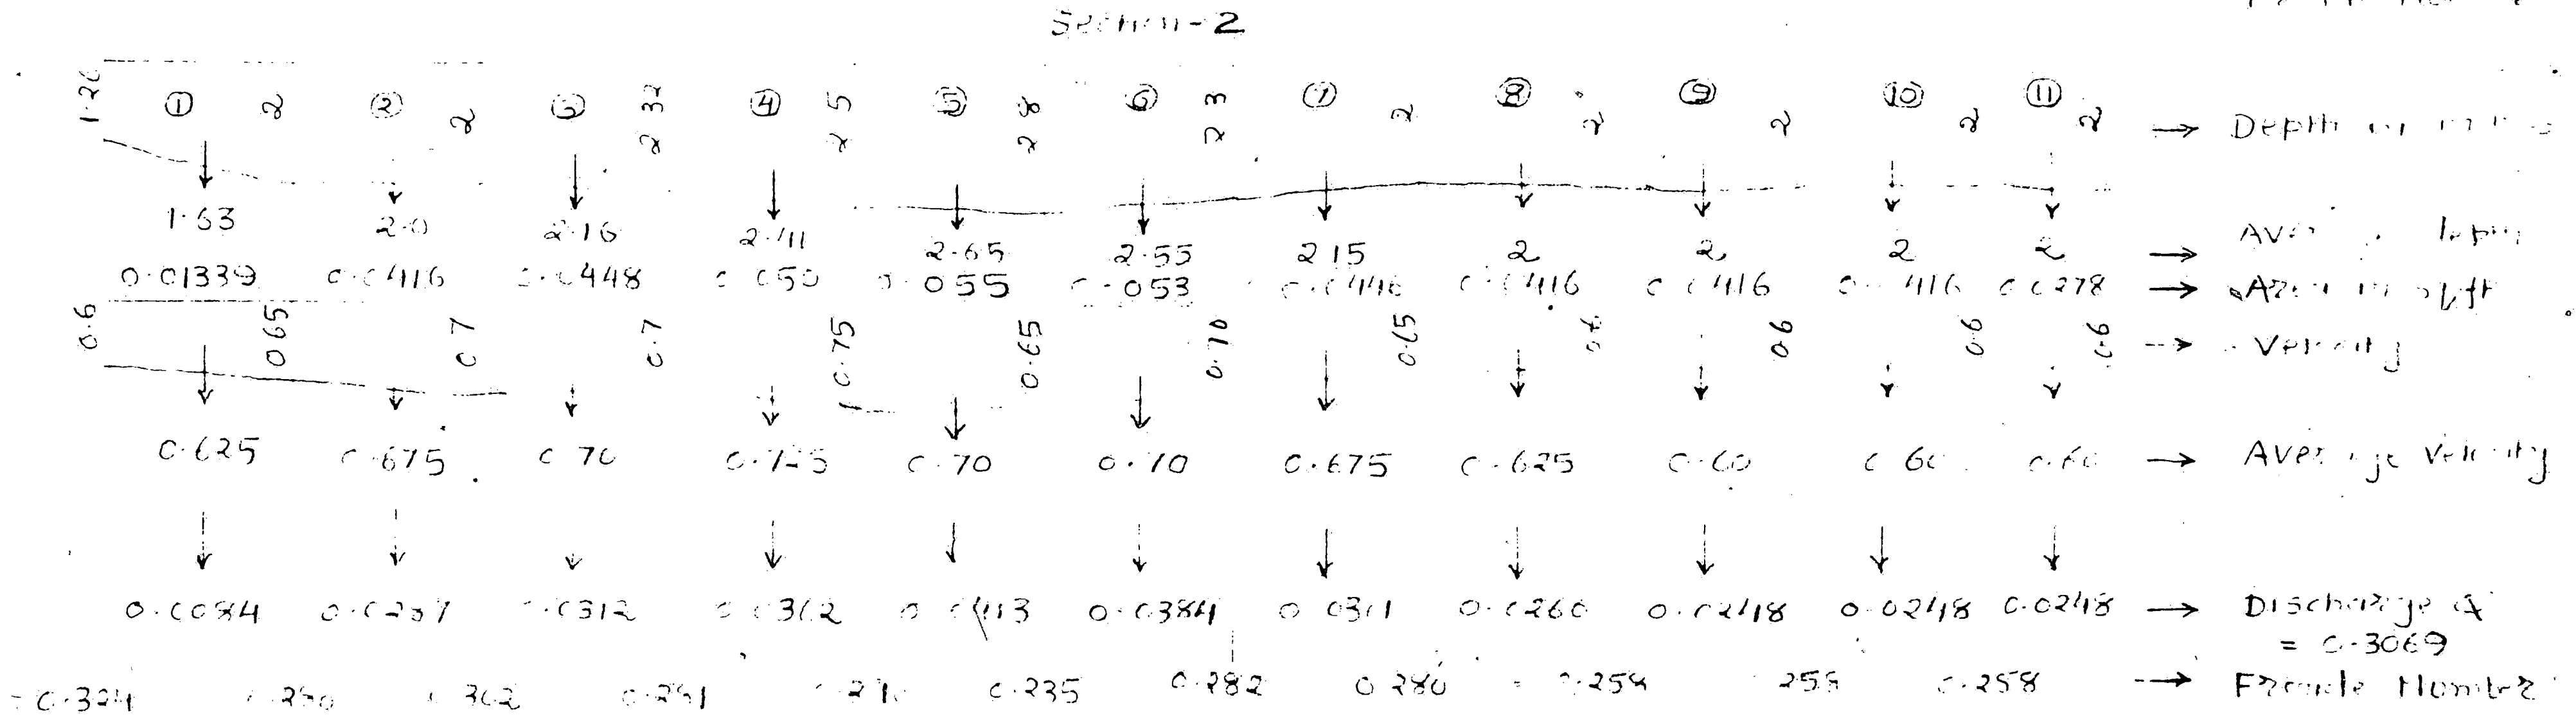 Section-2
1.26 ① 2 ② 2 ③ 2.32 ④ 2.5 ⑤ 2.8 ⑥ 2.3 ⑦ 2 ⑧ 2 ⑨ 2 ⑩ 2 ⑪ 2 → Depth in
1.63 2.0 2.16 2.41 2.65 2.55 2.15 2 2 2 2 →
0.01339 0.0416 0.0448 0.050 0.055 0.053 0.0446 0.0416 0.0416 0.0416 0.0278 → Area in sqft
0.6 0.65 0.7 0.7 0.75 0.65 0.70 0.65 0.6 0.6 0.6 0.6 → Velocity
0.625 0.675 0.70 0.725 0.70 0.70 0.675 0.625 0.60 0.60 0.60 → Average Velocity
0.0084 0.0312 0.0362 0.0384 0.0301 0.0260 0.0248 0.0248 0.0248 → Discharge Q
= 0.3069
0.324 0.235 0.282 0.280 0.258 → Froude Number